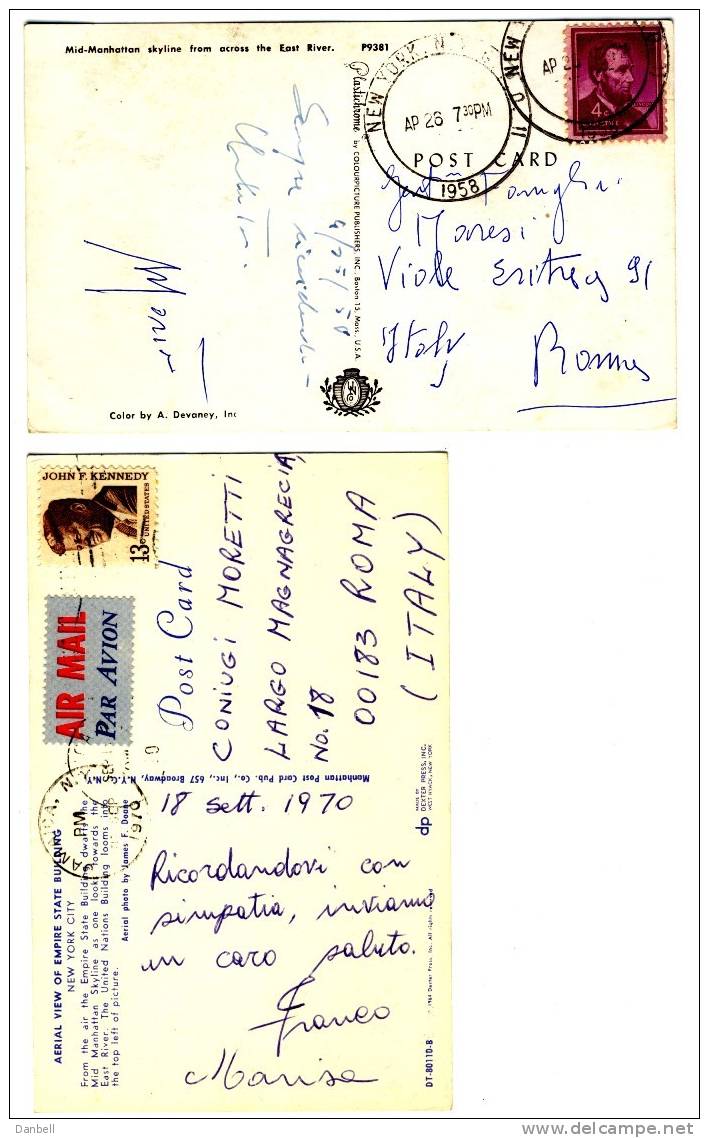 Mid-Manhattan skyline from across the East River. P9381
NEW YORK, N.Y.
AP 26 7 30 PM
1958
NEW
AP
4¢
POST CARD
Plastichrome by COLOURPICTURE PUBLISHERS, INC., Boston 15, Mass., U.S.A.
4/25/58
Famiglia
Maresi
Viale Eritrea 91
Italy Roma
Color by A. Devaney, Inc
JOHN F. KENNEDY
UNITED STATES
13c
AIR MAIL
PAR AVION
Post Card
CONIUGI MORETTI
LARGO MAGNAGRECIA
No. 18
00183 ROMA
(ITALY)
Manhattan Post Card Pub. Co., Inc., 657 Broadway, N.Y.C. N.Y.
MADE BY
dp DEXTER PRESS, INC.
WEST NYACK, NEW YORK
JAMAICA, N.Y.
PM
1970
AERIAL VIEW OF EMPIRE STATE BUILDING
NEW YORK CITY
From the air the Empire State Building dwarfs the
Mid Manhattan Skyline as one looks towards the
East River. The United Nations Building looms into
the top left of picture.
Aerial photo by James F. Doane
18 sett. 1970
Ricordandovi con
simpatia, inviamo
un caro saluto.
Franco
Marisa
© 1964 Dexter Press, Inc. All rights reserved
DT-80110-B
Danbell
delcampe.net